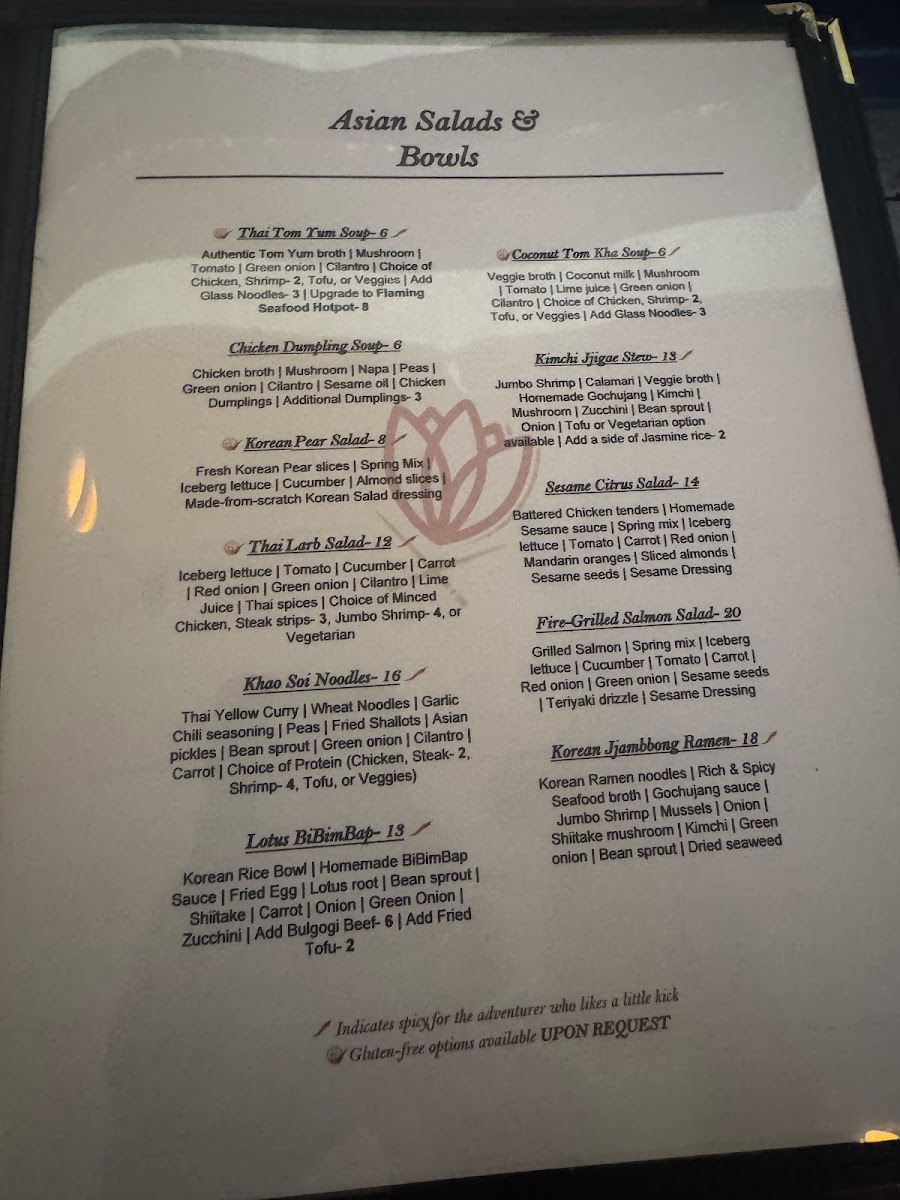 Asian Salads &
Bowls
Thai Tom Yum Soup- 6
Authentic Tom Yum broth | Mushroom |
Tomato | Green onion | Cilantro | Choice of
Chicken, Shrimp- 2, Tofu, or Veggies | Add
Glass Noodles- 3 | Upgrade to Flaming
Seafood Hotpot- 8
Chicken Dumpling Soup- 6
Chicken broth | Mushroom | Napa | Peas |
Green onion | Cilantro | Sesame oil | Chicken
Dumplings | Additional Dumplings- 3
Korean Pear Salad- 8
Fresh Korean Pear slices | Spring Mix |
Iceberg lettuce | Cucumber | Almond slices |
Made-from-scratch Korean Salad dressing
Thai Larb Salad- 12
Iceberg lettuce | Tomato | Cucumber | Carrot
| Red onion | Green onion | Cilantro | Lime
Juice | Thai spices | Choice of Minced
Chicken, Steak strips- 3, Jumbo Shrimp- 4, or
Vegetarian
Khao Soi Noodles- 16
Thai Yellow Curry | Wheat Noodles | Garlic
Chili seasoning | Peas | Fried Shallots | Asian
pickles | Bean sprout | Green onion | Cilantro |
Carrot | Choice of Protein (Chicken, Steak- 2,
Shrimp- 4, Tofu, or Veggies)
Lotus BiBimBap- 13
Korean Rice Bowl | Homemade BiBimBap
Sauce | Fried Egg | Lotus root | Bean sprout |
Shiitake | Carrot | Onion | Green Onion |
Zucchini | Add Bulgogi Beef- 6 | Add Fried
Tofu- 2
Coconut Tom Kha Soup- 6
Veggie broth | Coconut milk | Mushroom
| Tomato | Lime juice | Green onion |
Cilantro | Choice of Chicken, Shrimp- 2,
Tofu, or Veggies | Add Glass Noodles- 3
Kimchi Jjigae Stew- 13
Jumbo Shrimp | Calamari | Veggie broth |
Homemade Gochujang | Kimchi |
Mushroom | Zucchini | Bean sprout |
Onion | Tofu or Vegetarian option
available | Add a side of Jasmine rice- 2
Sesame Citrus Salad- 14
Battered Chicken tenders | Homemade
Sesame sauce | Spring mix | Iceberg
lettuce | Tomato | Carrot | Red onion |
Mandarin oranges | Sliced almonds |
Sesame seeds | Sesame Dressing
Fire-Grilled Salmon Salad- 20
Grilled Salmon | Spring mix | Iceberg
lettuce | Cucumber | Tomato | Carrot |
Red onion | Green onion | Sesame seeds
| Teriyaki drizzle | Sesame Dressing
Korean Jjambbong Ramen- 18
Korean Ramen noodles | Rich & Spicy
Seafood broth | Gochujang sauce |
Jumbo Shrimp | Mussels | Onion |
Shiitake mushroom | Kimchi | Green
onion | Bean sprout | Dried seaweed
Indicates spicy for the adventurer who likes a little kick
Gluten-free options available UPON REQUEST